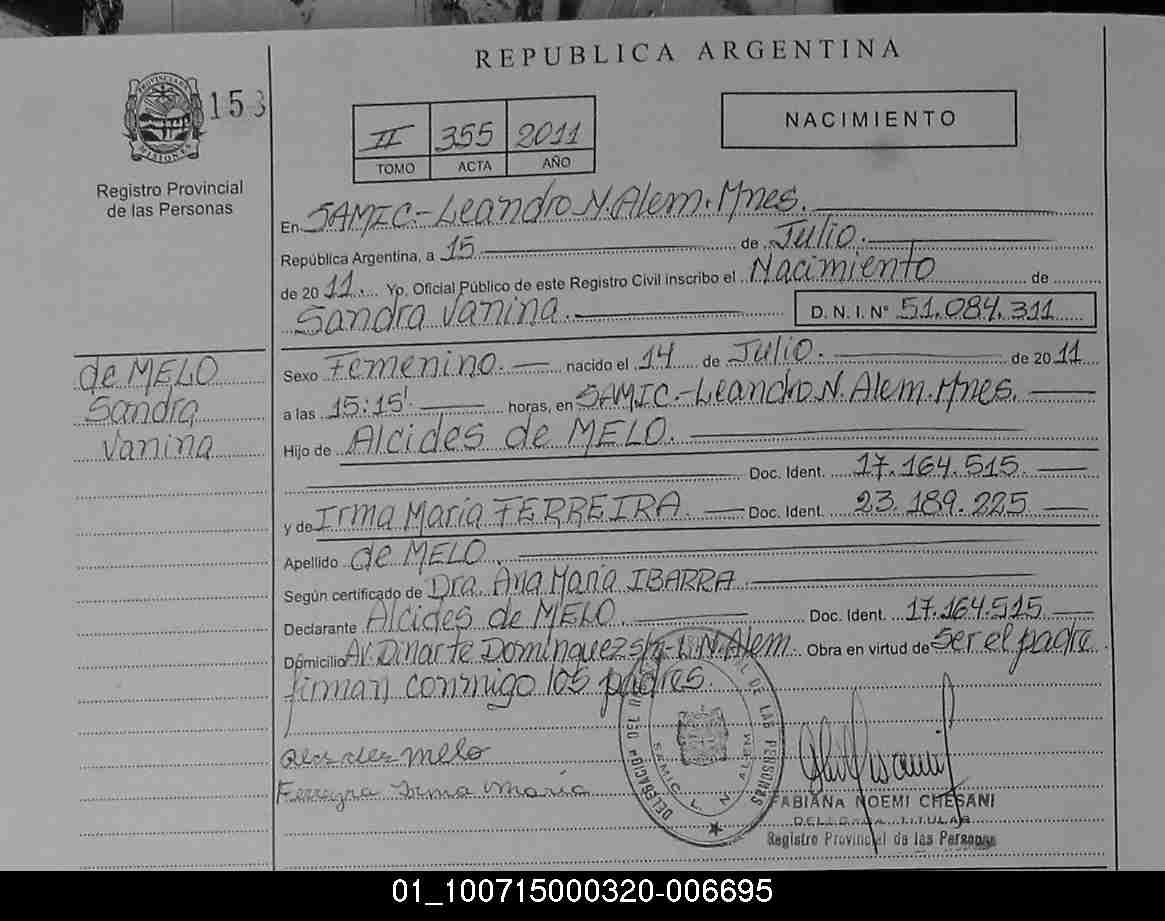 REPUBLICA ARGENTINA
PROVINCIA DE MISIONES
153
II 355 2011
TOMO ACTA AÑO
NACIMIENTO
Registro Provincial
de las Personas
En SAMIC.-Leandro N. Alem. Mnes.
República Argentina, a 15 de Julio.
de 20 11 Yo, Oficial Público de este Registro Civil inscribo el Nacimiento de
Sandra Vanina. D. N. I. N° 51.084.311
de MELO
Sandra
Vanina
Sexo Femenino. nacido el 14 de Julio. de 20 11
a las 15:15' horas, en SAMIC.-Leandro N. Alem. Mnes.
Hijo de Alcides de MELO.
Doc. Ident. 17.164.515.
y de Irma María FERREIRA. Doc. Ident. 23.189.225
Apellido de MELO.
Según certificado de Dra. Ana María IBARRA.
Declarante Alcides de MELO. Doc. Ident. 17.164.515
Domicilio Av. Dinarte Domínguez s/n-L.N. Alem. Obra en virtud de Ser el padre
firman conmigo los padres.
melo
Ferreyra Irma María
DE LAS PERSONAS
SAMIC L. N. ALEM
FABIANA NOEMI CHESANI
DELEGADA TITULAR
Registro Provincial de las Personas
01_100715000320-006695